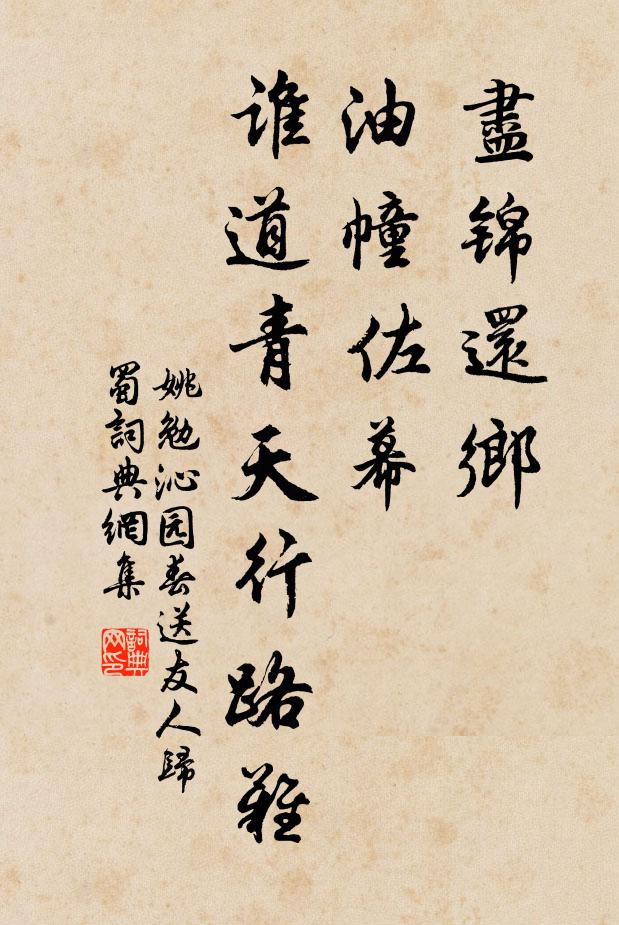 盡錦還鄉
油幢佐幕
誰道青天行路難
姚勉沁园春送友人歸
蜀詞典網集
詞典
网印